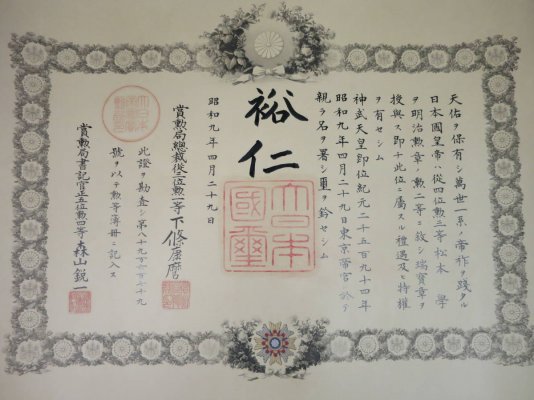 天佑ヲ保有シ萬世一系ノ帝祚ヲ踐タル
日本國皇帝ハ從四位勲三等松本學
ヲ明治勲章ノ勲二等ニ敍シ瑞寶章ヲ
授與ス即チ此位ニ屬スル禮遇及ヒ特權
ヲ有セシム
神武天皇即位紀元二千五百九十四年
昭和九年四月二十九日東京帝宮ニ於テ
親ラ名ヲ署シ璽ヲ鈐セシム
裕仁
大日本國璽
昭和九年四月二十九日
賞勲局總裁從三位勲一等下條康麿
此證ヲ勘査シ第八十九万七百七十九
號ヲ以テ勲等簿冊ニ記入ス
賞勲局書記官正五位勲四等森山鋭一